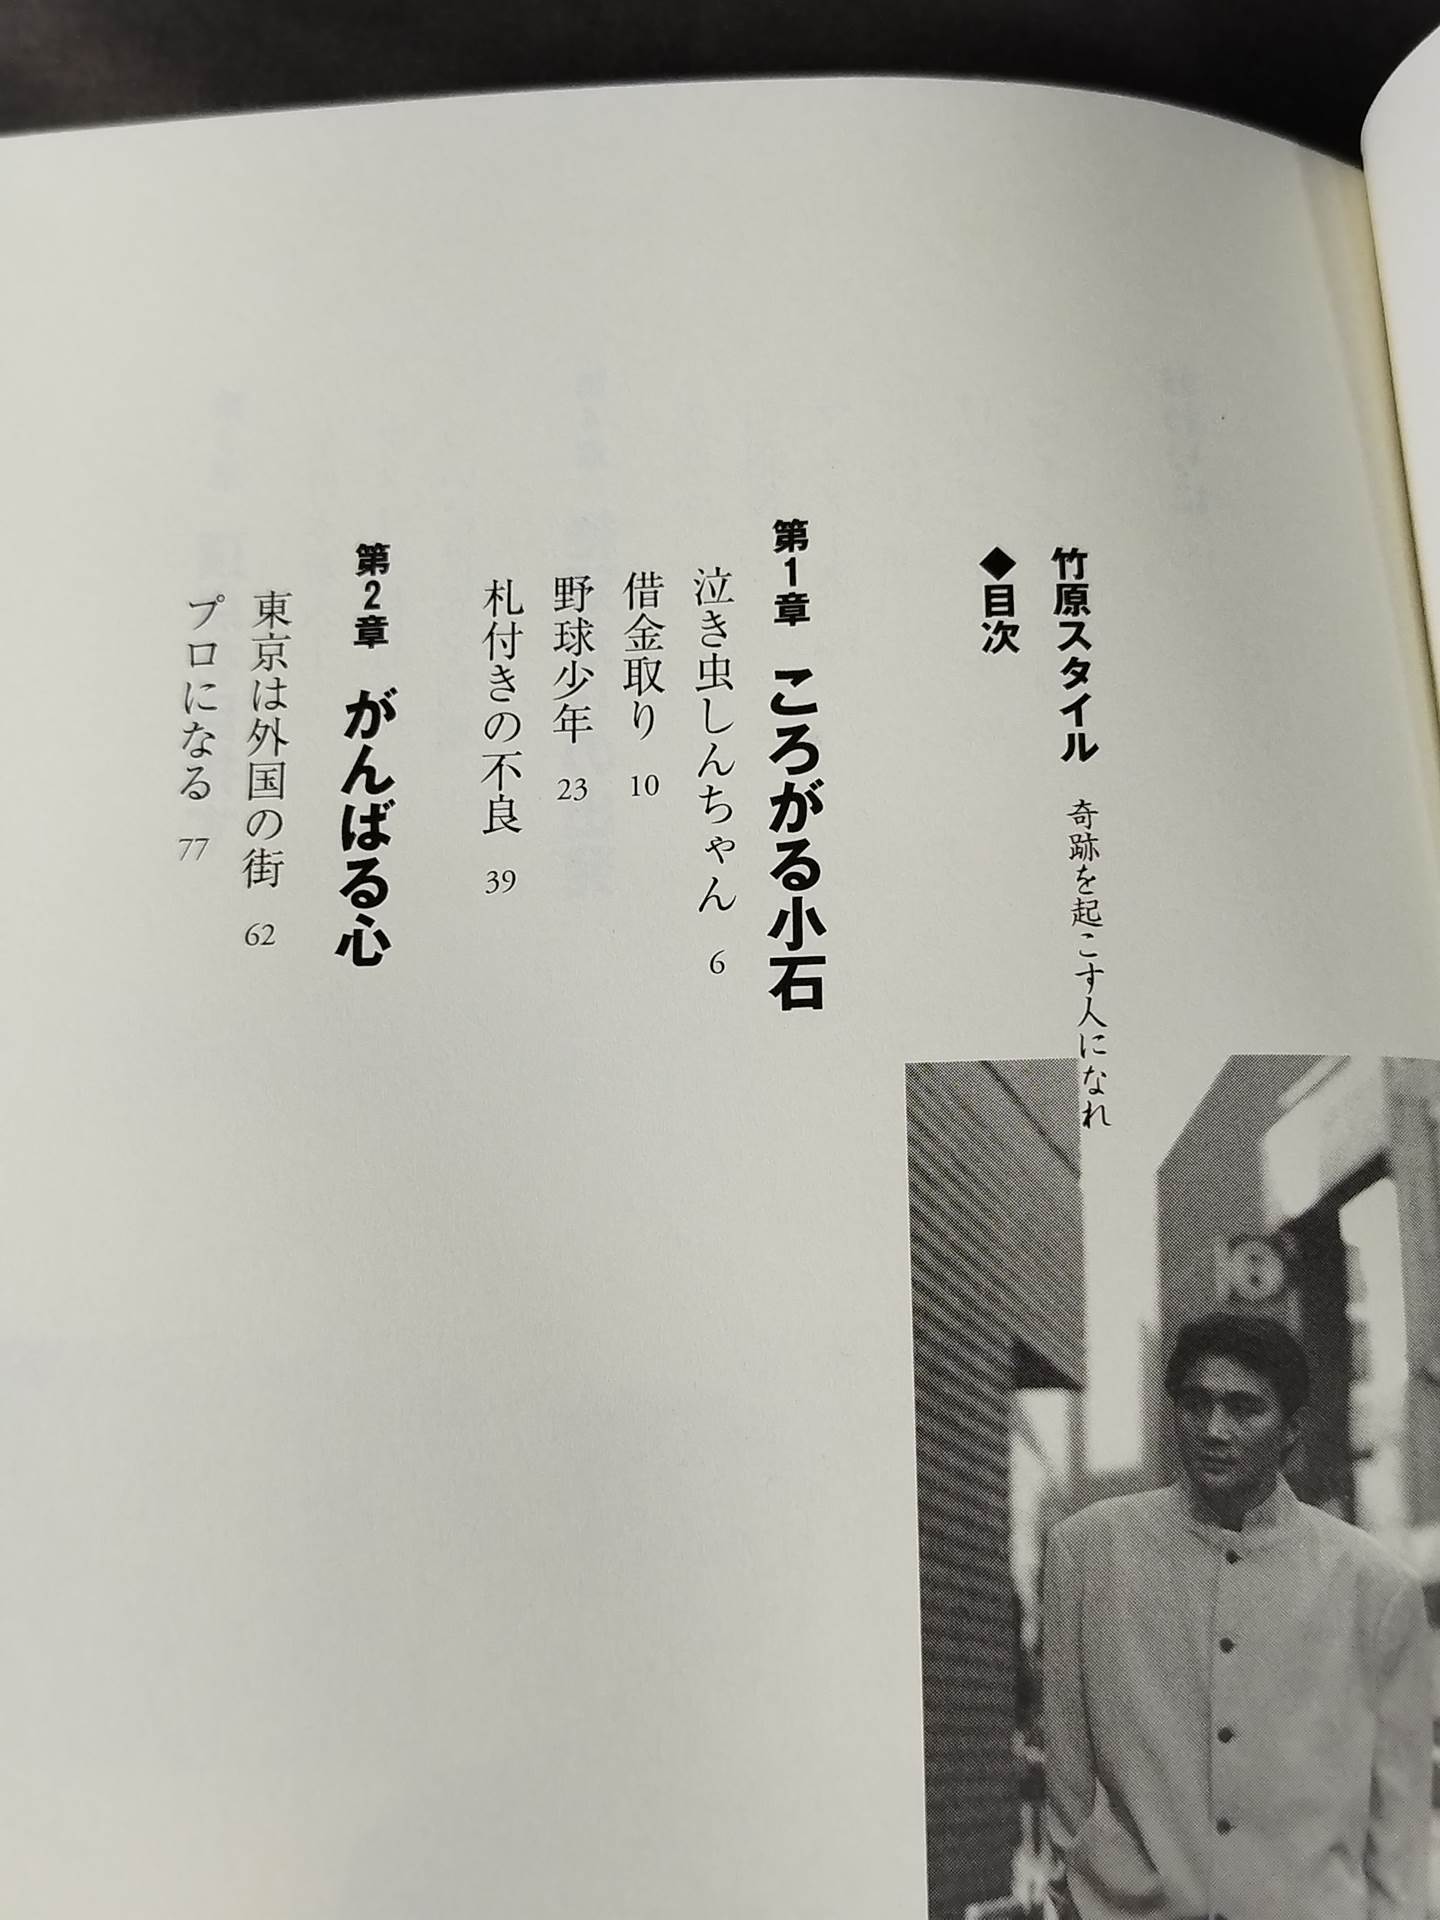 竹原スタイル 奇跡を起こす人になれ
◆目次
第1章 ころがる小石
泣き虫しんちゃん 6
借金取り 10
野球少年 23
札付きの不良 39
第2章 がんばる心
東京は外国の街 62
プロになる 77